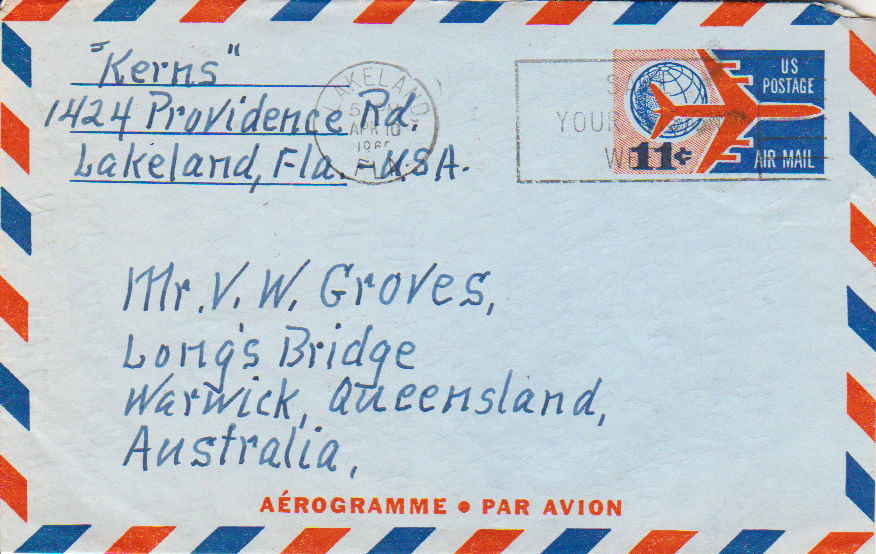 "Kerns"
1424 Providence Rd.
Lakeland, Fla. - U.S.A.
LAKELAND,
APR 10
YOUR
11¢
US
POSTAGE
AIR MAIL
Mr. V. W. Groves,
Long's Bridge
Warwick, Queensland,
Australia,
AÉROGRAMME • PAR AVION